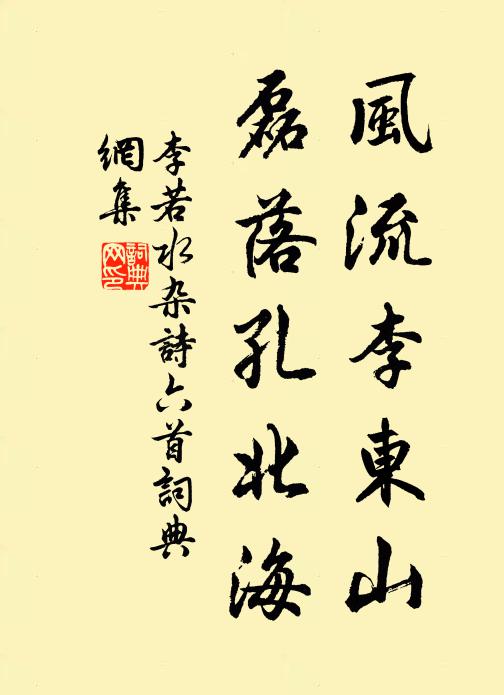 風流李東山
磊落孔北海
李若水杂詩六首詞典
網集
詞典
网印